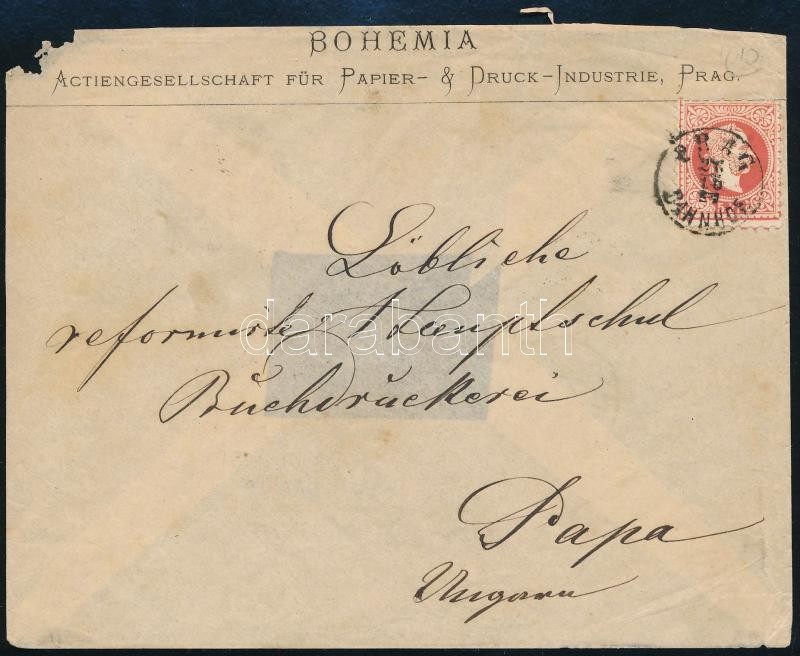 BOHEMIA
ACTIENGESELLSCHAFT FÜR PAPIER- & DRUCK-INDUSTRIE, PRAG.
PRAG
BAHNHOF
Löbliche
reformirte Hauptschul
Buchdruckerei
darabanth
Papa
Ungarn